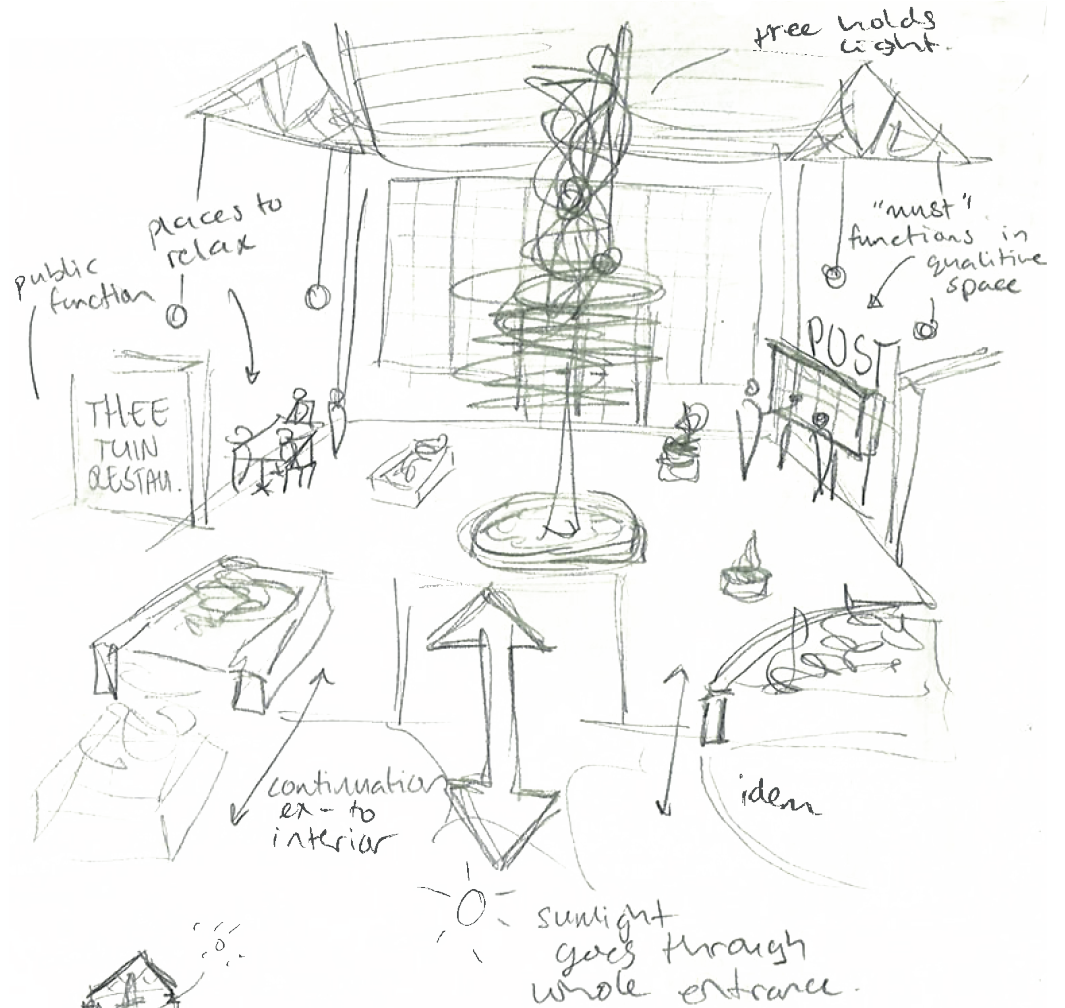 tree holds
light.
places to
relax
public
function
"must"
functions in
qualitive
space
POST
THEE
TUIN
RESTAU.
continuation
ex- to
interior
idem
sunlight
goes through
whole entrance.